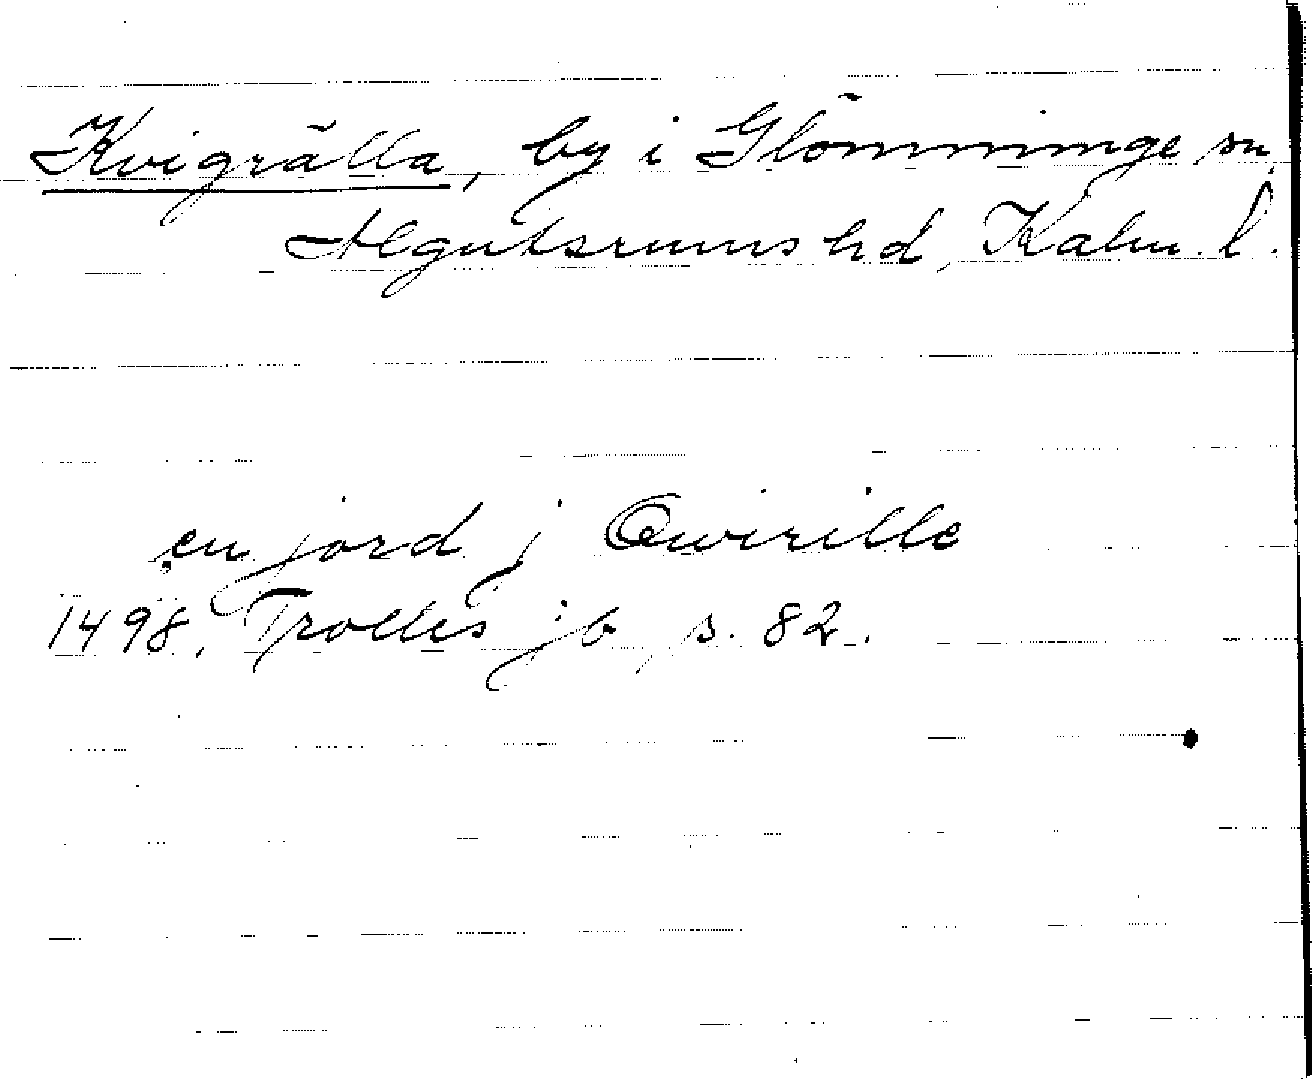 Kvigrälla, by i Glömminge sn,
Algutsrums hd, Kalm. l.
en jord j Qwirille
1498, Trolles jb, s. 82.